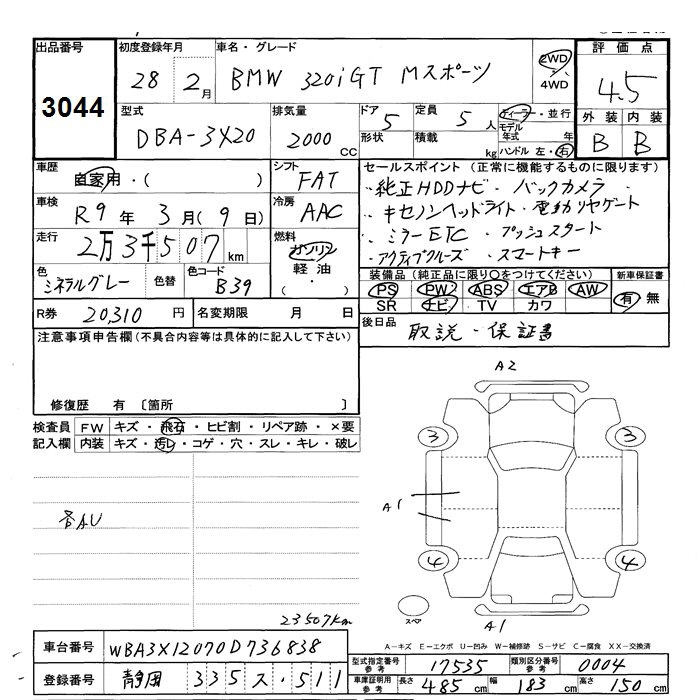 出品番号
3044
初度登録年月
28年2月
車名・グレード
BMW 320iGT Mスポーツ
2WD・4WD
評価点
4.5
外装 内装
B B
型式
DBA-3X20
排気量
2000 CC
ドア
5
形状
定員
5人
積載 kg
ディーラー・並行
モデル年式 年
ハンドル 左・右
車歴
自家用・( )
シフト
FAT
車検
R9年3月(9日)
冷房
AAC
走行
2万3千507km
燃料
ガソリン
軽油
( ・ )
色
ミネラルグレー
色替
色コード
B39
セールスポイント (正常に機能するものに限ります)
・純正HDDナビ・バックカメラ
・キセノンヘッドライト・電動リヤゲート
・ミラーETC・プッシュスタート
・アクティブクルーズ・スマートキー
装備品 (純正品に限り○をつけてください)
PS PW ABS エアB AW
SR ナビ TV カワ
新車保証書
有 無
R券 20,310 円
名変期限 月 日
後日品
取説・保証書
注意事項申告欄(不具合内容等は具体的に記入して下さい)
修復歴 有 〔箇所 〕
検査員記入欄
FW キズ・飛石・ヒビ割・リペア跡・×要
内装 キズ・汚レ・コゲ・穴・スレ・キレ・破レ
各AU
23507km
A2
3 3
A1
4 4
スペア
A1
A-キズ E-エクボ U-凹み W-補修跡 S-サビ C-腐食 XX-交換済
車台番号 WBA3X12070D736838
登録番号 静岡 335 ス ・511
型式指定番号参考 17535
類別区分番号参考 0004
車庫証明用参考 長さ 485cm 幅 183cm 高さ 150cm